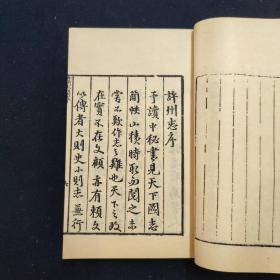 許州志序
予讀中秘書見天下國志
簡帙山積時取而閱之未
嘗不歎作志之難也天下之政
在實不在文顧亦有賴文
以傳者大則史小則志並行